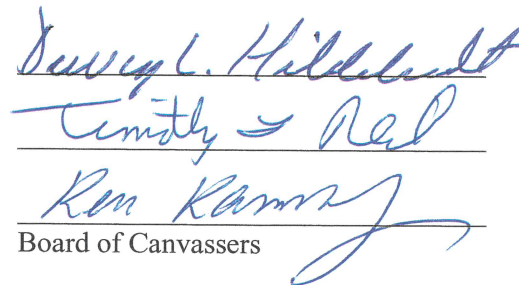 L. Hildebrandt
Timothy Reil
Ren Ramsey
Board of Canvassers